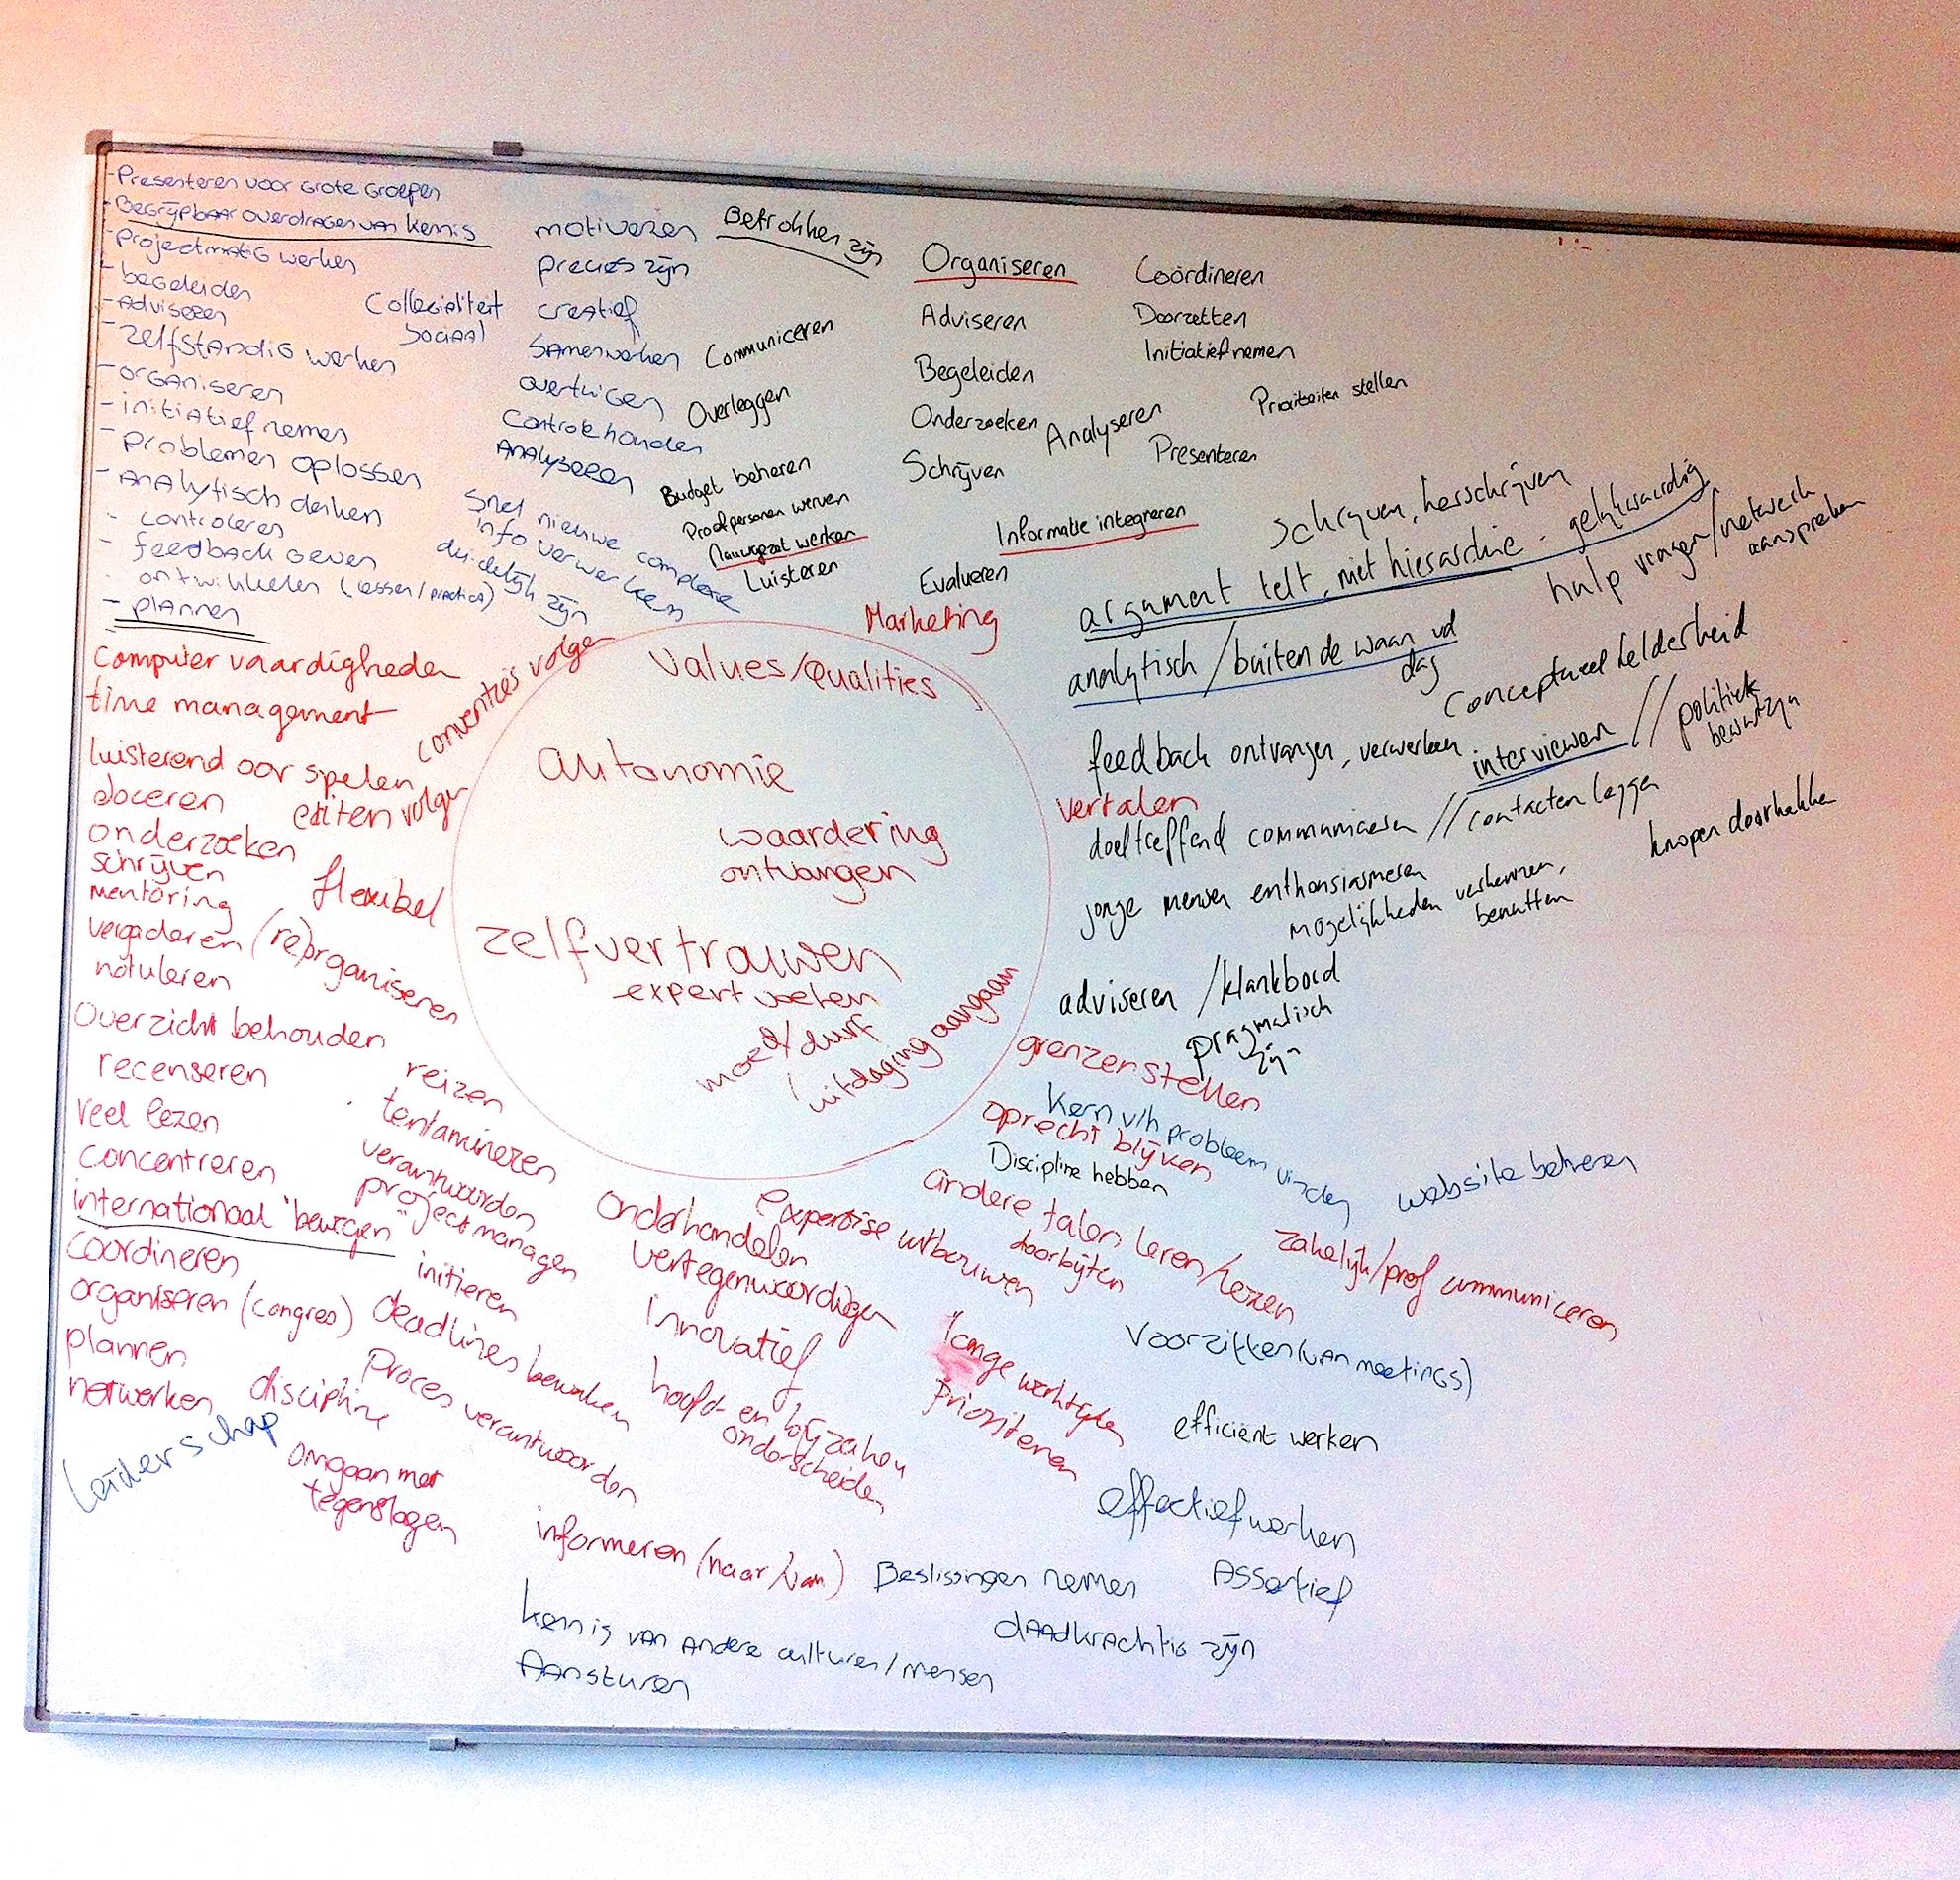 - Presenteren voor grote groepen
- Begrijpbaar overdragen van kennis
- projectmatig werken
- begeleiden
- Adviseren
- zelfstandig werken
- organiseren
- initiatief nemen
- problemen oplossen
- Analytisch denken
- controleren
- feedback geven
- ontwikkelen (lessen/practica)
- plannen
Collegialiteit
Sociaal
motiveren
precies zijn
creatief
Samenwerken
overtuigen
Controle houden
Analyseren
Snel nieuwe complexe
info verwerken
duidelijk zijn
Betrokken zijn
Communiceren
Overleggen
Budget beheren
Proefpersonen werven
Nauwgezet werken
Luisteren
Organiseren
Adviseren
Begeleiden
Onderzoeken
Schrijven
Analyseren
Coördineren
Doorzetten
Initiatief nemen
Prioriteiten stellen
Presenteren
Informatie integreren
Evalueren
Marketing
schrijven, herschrijven
argument telt, niet hierarchie - gelijkwaardig
hulp vragen/netwerk
aanspreken
analytisch / buiten de waan vd
dag
Conceptueel helderheid
feedback ontvangen, verwerken
interviewen // politiek
bewust zijn
vertalen
doeltreffend communiceren // contacten leggen
knopen doorhakken
jonge mensen enthousiasmeren
mogelijkheden verkennen,
benutten
adviseren / klankbord
pragmatisch
zijn
grenzen stellen
kern v/h probleem vinden
oprecht blijven
Discipline hebben
andere talen leren/lezen
website beheren
zakelijk/prof communiceren
Values/Qualities
autonomie
waardering
ontvangen
zelfvertrouwen
expert voelen
moed/durf
uitdaging aangaan
Computer vaardigheden
time management
conventies volgen
luisterend oor spelen
doceren
onderzoeken
schrijven
mentoring
flexibel
vergaderen
(re)organiseren
notuleren
Overzicht behouden
recenseren
reizen
veel lezen
tentamineren
concentreren
verantwoorden
internationaal "bewegen"
project managen
coordineren
initieren
organiseren (congres)
deadlines bewaken
plannen
proces verantwoorden
netwerken
discipline
Leiderschap
omgaan met
tegenslagen
onderhandelen
vertegenwoordigen
innovatief
hoofd- en bijzaken
onderscheiden
expertise uitbouwen
doorbijten
lange werktijden
prioriteren
Voorzitten (van meetings)
efficiënt werken
effectief werken
informeren (naar/van)
Beslissingen nemen
Assertief
daadkrachtig zijn
kennis van andere culturen/mensen
Aansturen